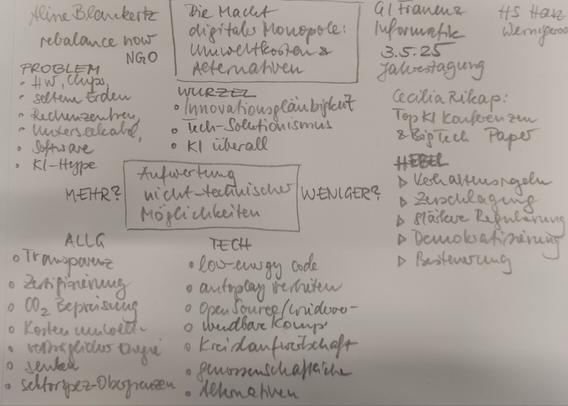 Aline Blankertz
rebalance now
NGO
Die Macht
digitaler Monopole:
Umweltkosten &
Alternativen
GI Frauen &
Informatik
3.5.25
Jahrestagung
HS Harz
Wernigerode
PROBLEM
• HW, Chips,
• seltene Erden
• Rechenzentren,
• Unterseekabel,
• Software
• KI-Hype
WURZEL
• Innovationsgläubigkeit
• Tech-Solutionismus
• KI überall
Cecilia Rikap:
Top KI Konferenzen
& BigTech Paper
HEBEL
▷ Verhaltensregeln
▷ Zerschlagung
▷ Stärkere Regulierung
▷ Demokratisierung
▷ Besteuerung
MEHR?
Aufwertung
nicht-technischer
Möglichkeiten
WENIGER?
ALLG
• Transparenz
• Zertifizierung
• CO2 Bepreisung
• Kosten umwelt-
• verträglicher Energie
• senken
• sektorspez-Obergrenzen
TECH
• low-energy code
• autoplay verbieten
• Open Source/wiederver-
• wendbare Komp
• Kreislaufwirtschaft
• genossenschaftliche
• Alternativen